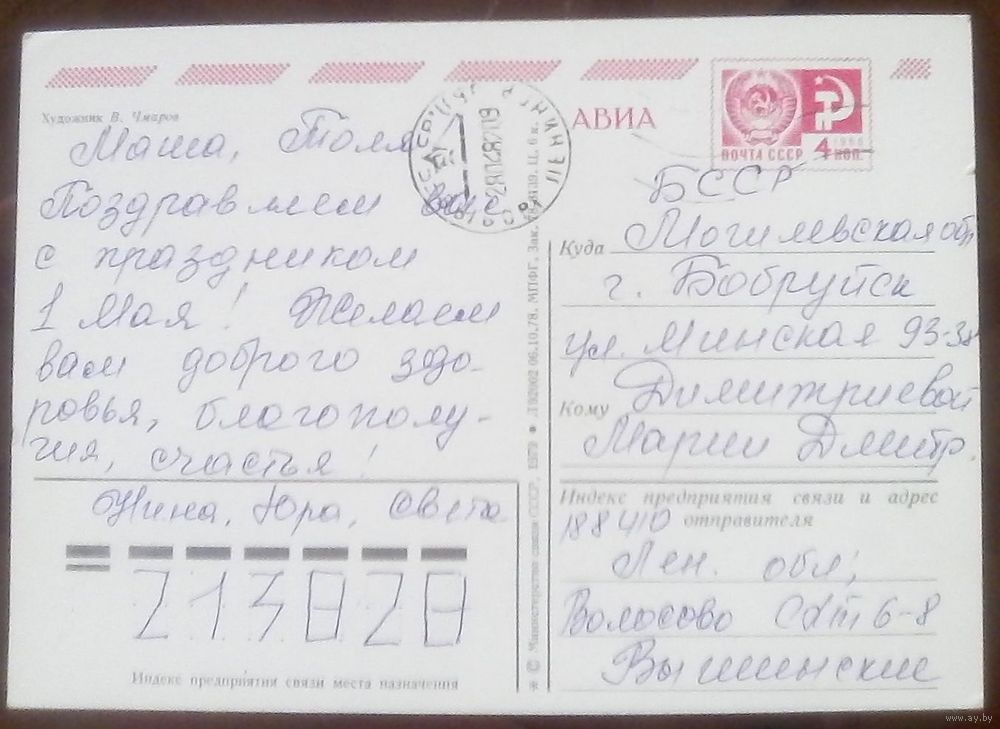 Художник В. Чмаров
АВИА
ПОЧТА СССР 4 КОП.
1966
Маша, Толя
Поздравляем вас
с праздником
1 Мая! Желаем
вам доброго здо-
ровья, благополу-
чия, счастья!
Нина, Юра, Света
213828
Индекс предприятия связи места назначения
© Министерство связи СССР, 1979 Л 82002 06.10.78. МПФГ. Зак. Ц. 6 к.
БССР
Куда Могилевская обл
г. Бобруйск
ул. Минская 93-38
Кому Димитриевой
Марии Дмитр.
Индекс предприятия связи и адрес
188410 отправителя
Лен. обл,
Волосово 6-8
Вышинские
www.ay.by